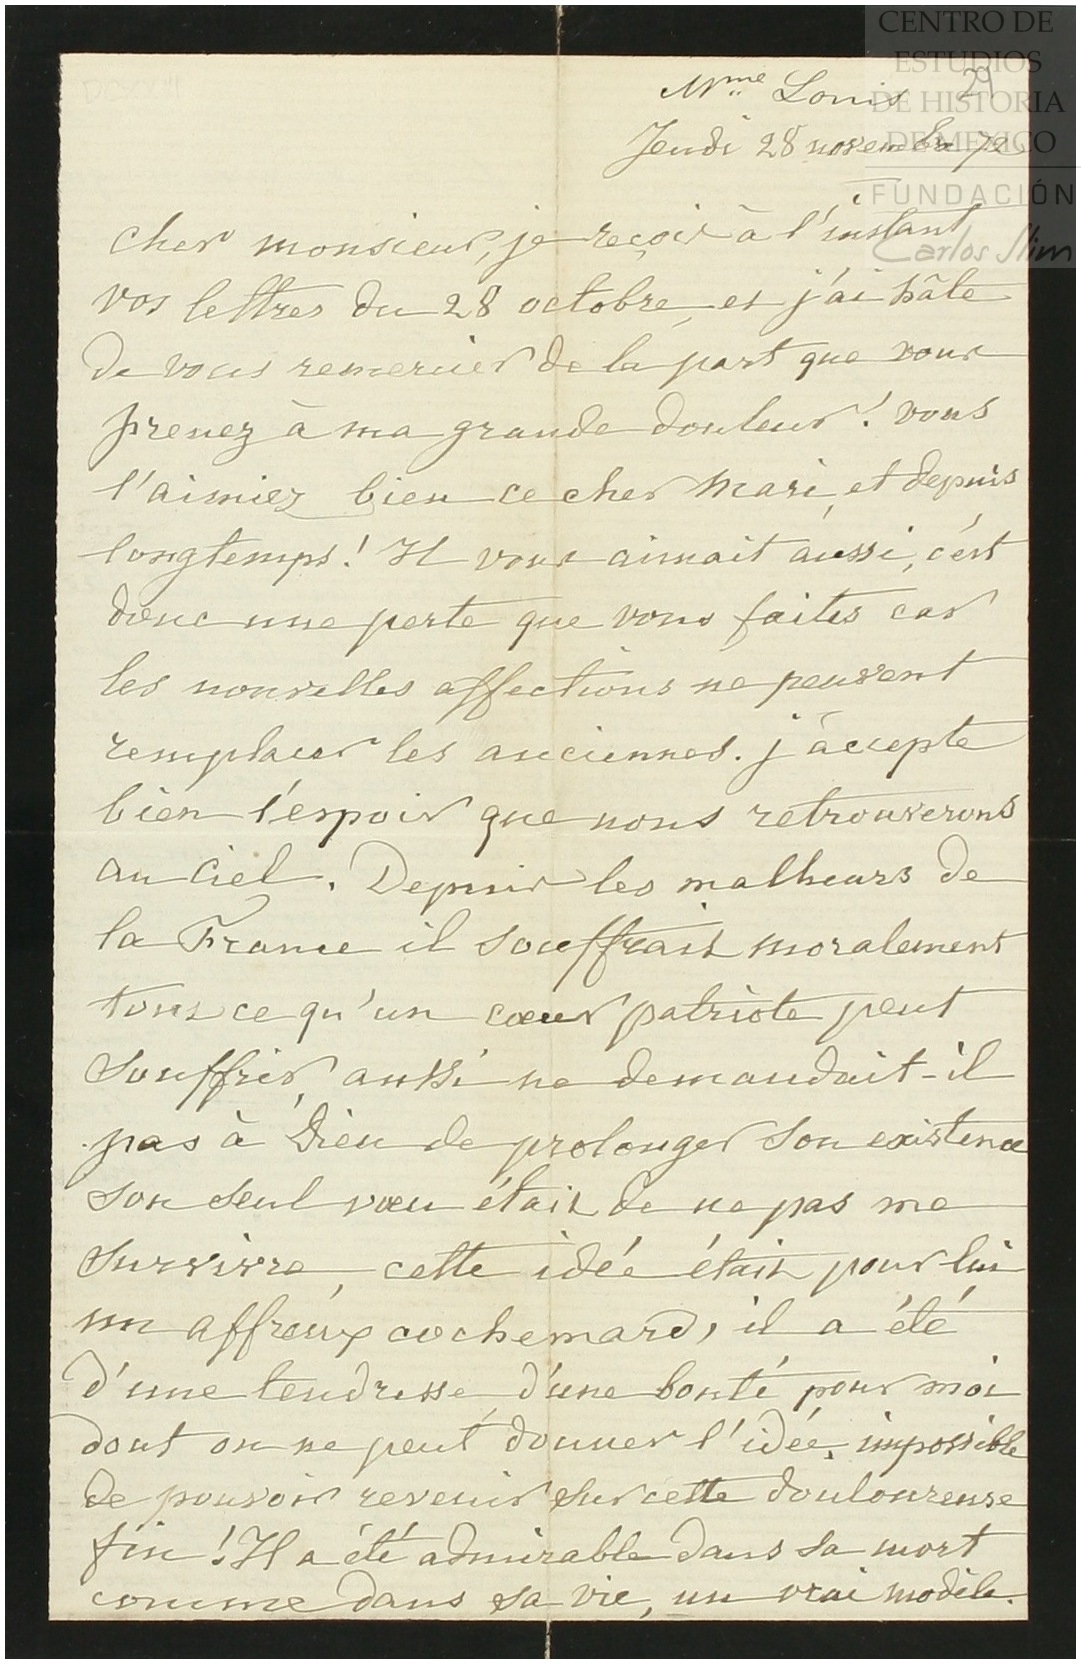 CENTRO DE
ESTUDIOS
DE HISTORIA
DE MEXICO
FUNDACIÓN
Carlos Slim
29
Mme Louis
Jeudi 28 novembre 72
cher monsieur, je reçois à l'instant
vos lettres du 28 octobre, et j'ai hâte
de vous remercier de la part que vous
prenez à ma grande douleur! vous
l'aimiez bien ce cher mari, et depuis
longtemps! Il vous aimait aussi, c'est
donc une perte que vous faites car
les nouvelles affections ne peuvent
remplacer les anciennes. j'accepte
bien l'espoir que nous retrouverons
au Ciel. Depuis les malheurs de
la France il souffrait moralement
tout ce qu'un cœur patriote peut
souffrir, aussi ne demandait-il
pas à Dieu de prolonger son existence
son seul vœu était de ne pas me
survivre, cette idée était pour lui
un affreux cochemard, il a été
d'une tendresse, d'une bonté pour moi
dont on ne peut donner l'idée, impossible
de pouvoir revenir sur cette douloureuse
fin! Il a été admirable dans sa mort
comme dans sa vie, un vrai modèle.